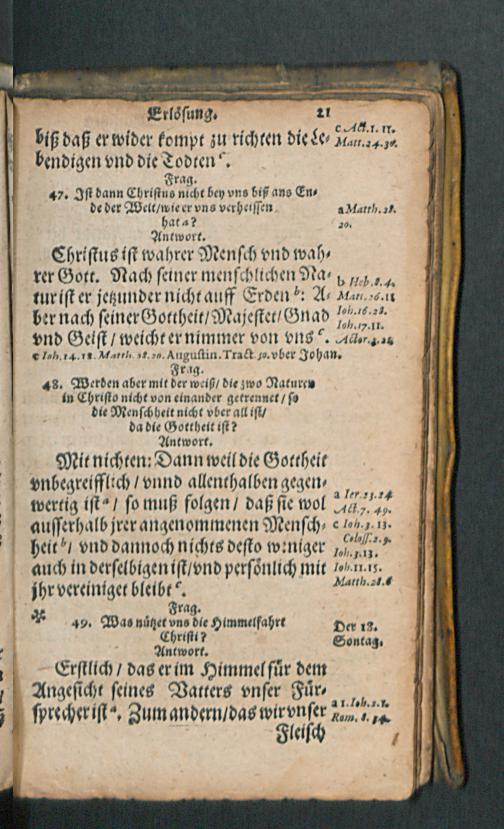 Erlösung. 21
biß daß er wider kompt zu richten die Le-
bendigen vnd die Todten c.
Frag.
47. Ist dann Christus nicht bey vns biß ans En-
de der Welt/wie er vns verheissen
hat a?
Antwort.
Christus ist wahrer Mensch vnd wah-
rer Gott. Nach seiner menschlichen Na-
tur ist er jetzunder nicht auff Erden b: A-
ber nach seiner Gottheit/Majestet/Gnad
vnd Geist/ weicht er nimmer von vns c.
c Ioh.14.18. Matth. 28.20. Augustin. Tract. 50. vber Johan.
Frag.
48. Werden aber mit der weiß/ die zwo Naturen
in Christo nicht von einander getrennet/ so
die Menschheit nicht vber all ist/
da die Gottheit ist?
Antwort.
Mit nichten: Dann weil die Gottheit
vnbegreifflich/ vnnd allenthalben gegen-
wertig ist a/ so muß folgen/ daß sie wol
ausserhalb jrer angenommenen Mensch-
heit b/ vnd dannoch nichts desto weniger
auch in derselbigen ist/vnd persönlich mit
jhr vereiniget bleibt c.
Frag.
49. Was nützet vns die Himmelfahrt
Christi?
Antwort.
Erstlich/ das er im Himmel für dem
Angesicht seines Vatters vnser Für-
sprecher ist a. Zum andern/das wir vnser
Fleisch
c Act.1. 11.
Matt.24.30.
a Matth. 28.
20.
b Heb. 8. 4.
Matt. 26. 11
Ioh. 16. 28.
Ioh. 17. 11.
Actor. 3. 21
a Ier. 23. 24
Act. 7. 49.
c Ioh. 3. 13.
Coloss. 2. 9.
Ioh. 3. 13.
Ioh. 11. 15.
Matth. 28. 6
Der 18.
Sontag.
a 1. Ioh. 2. 1.
Rom. 8. 34.